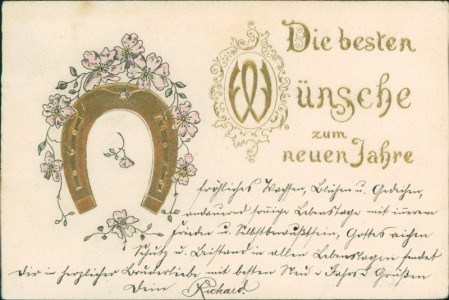 Die besten
Wünsche
zum
neuen Jahre
fröhliches Wachsen, Blühen u. Gedeihen,
andauernd sonnige Lebenstage mit innerem
Frieden u. Selbstbewußtsein, Gottes reichen
Schutz u. Beistand in allen Lebenslagen sendet
Dir in herzlicher Bruderliebe mit besten Grüßen
Dein Richard.